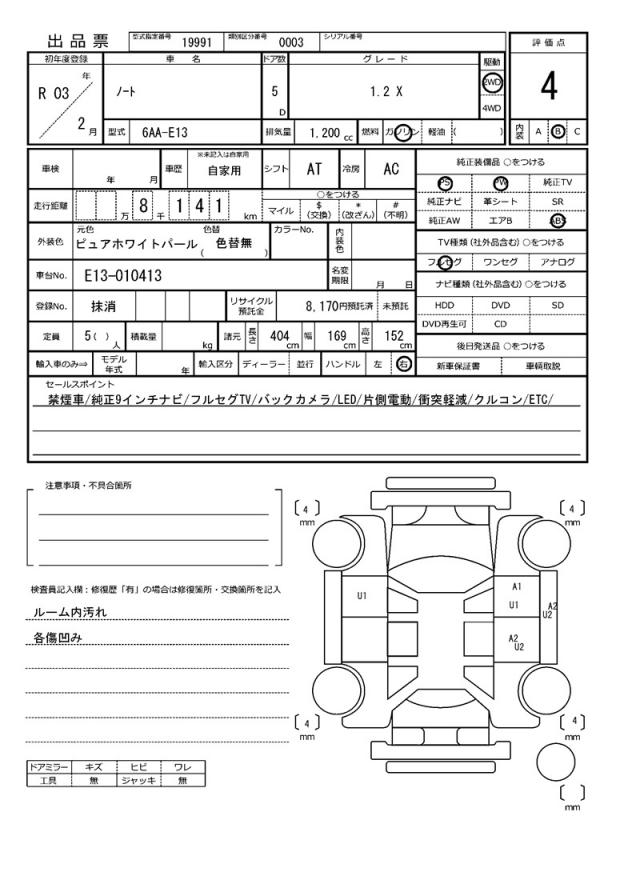 出品票
型式指定番号 19991 類別区分番号 0003 シリアル番号
評価点
4
内装 A B C
初年度登録 車名 ドア数 グレード 駆動
R 03 年 2 月
ノート
5 D
1.2 X
2WD
4WD
型式 6AA-E13 排気量 1.200 cc 燃料 ガソリン 軽油 ( )
車検 年 月 車歴 ※未記入は自家用 自家用 シフト AT 冷房 AC
走行距離 万 8 千 1 4 1 km
○をつける
マイル $(交換) *(改ざん) #(不明)
外装色 元色 ピュアホワイトパール 色替 ( 色替無 ) カラーNo. 内装色
車台No. E13-010413 名変期限 月 日
登録No. 抹消 リサイクル預託金 8,170円預託済 未預託
定員 5( )人 積載量 kg 諸元 長さ 404 cm 幅 169 cm 高さ 152 cm
輸入車のみ⇒ モデル年式 年 輸入区分 ディーラー 並行 ハンドル 左 右
純正装備品 ○をつける
PS PW 純正TV
純正ナビ 革シート SR
純正AW エアB ABS
TV種類(社外品含む)○をつける
フルセグ ワンセグ アナログ
ナビ種類(社外品含む)○をつける
HDD DVD SD
DVD再生可 CD
後日発送品 ○をつける
新車保証書 車輌取説
セールスポイント
禁煙車/純正9インチナビ/フルセグTV/バックカメラ/LED/片側電動/衝突軽減/クルコン/ETC/
注意事項・不具合箇所
検査員記入欄:修復歴「有」の場合は修復箇所・交換箇所を記入
ルーム内汚れ
各傷凹み
ドアミラー キズ ヒビ ワレ
工具 無 ジャッキ 無
4 mm
4 mm
U1
A1
U1
A2
U2
A2
U2
4 mm
4 mm
mm